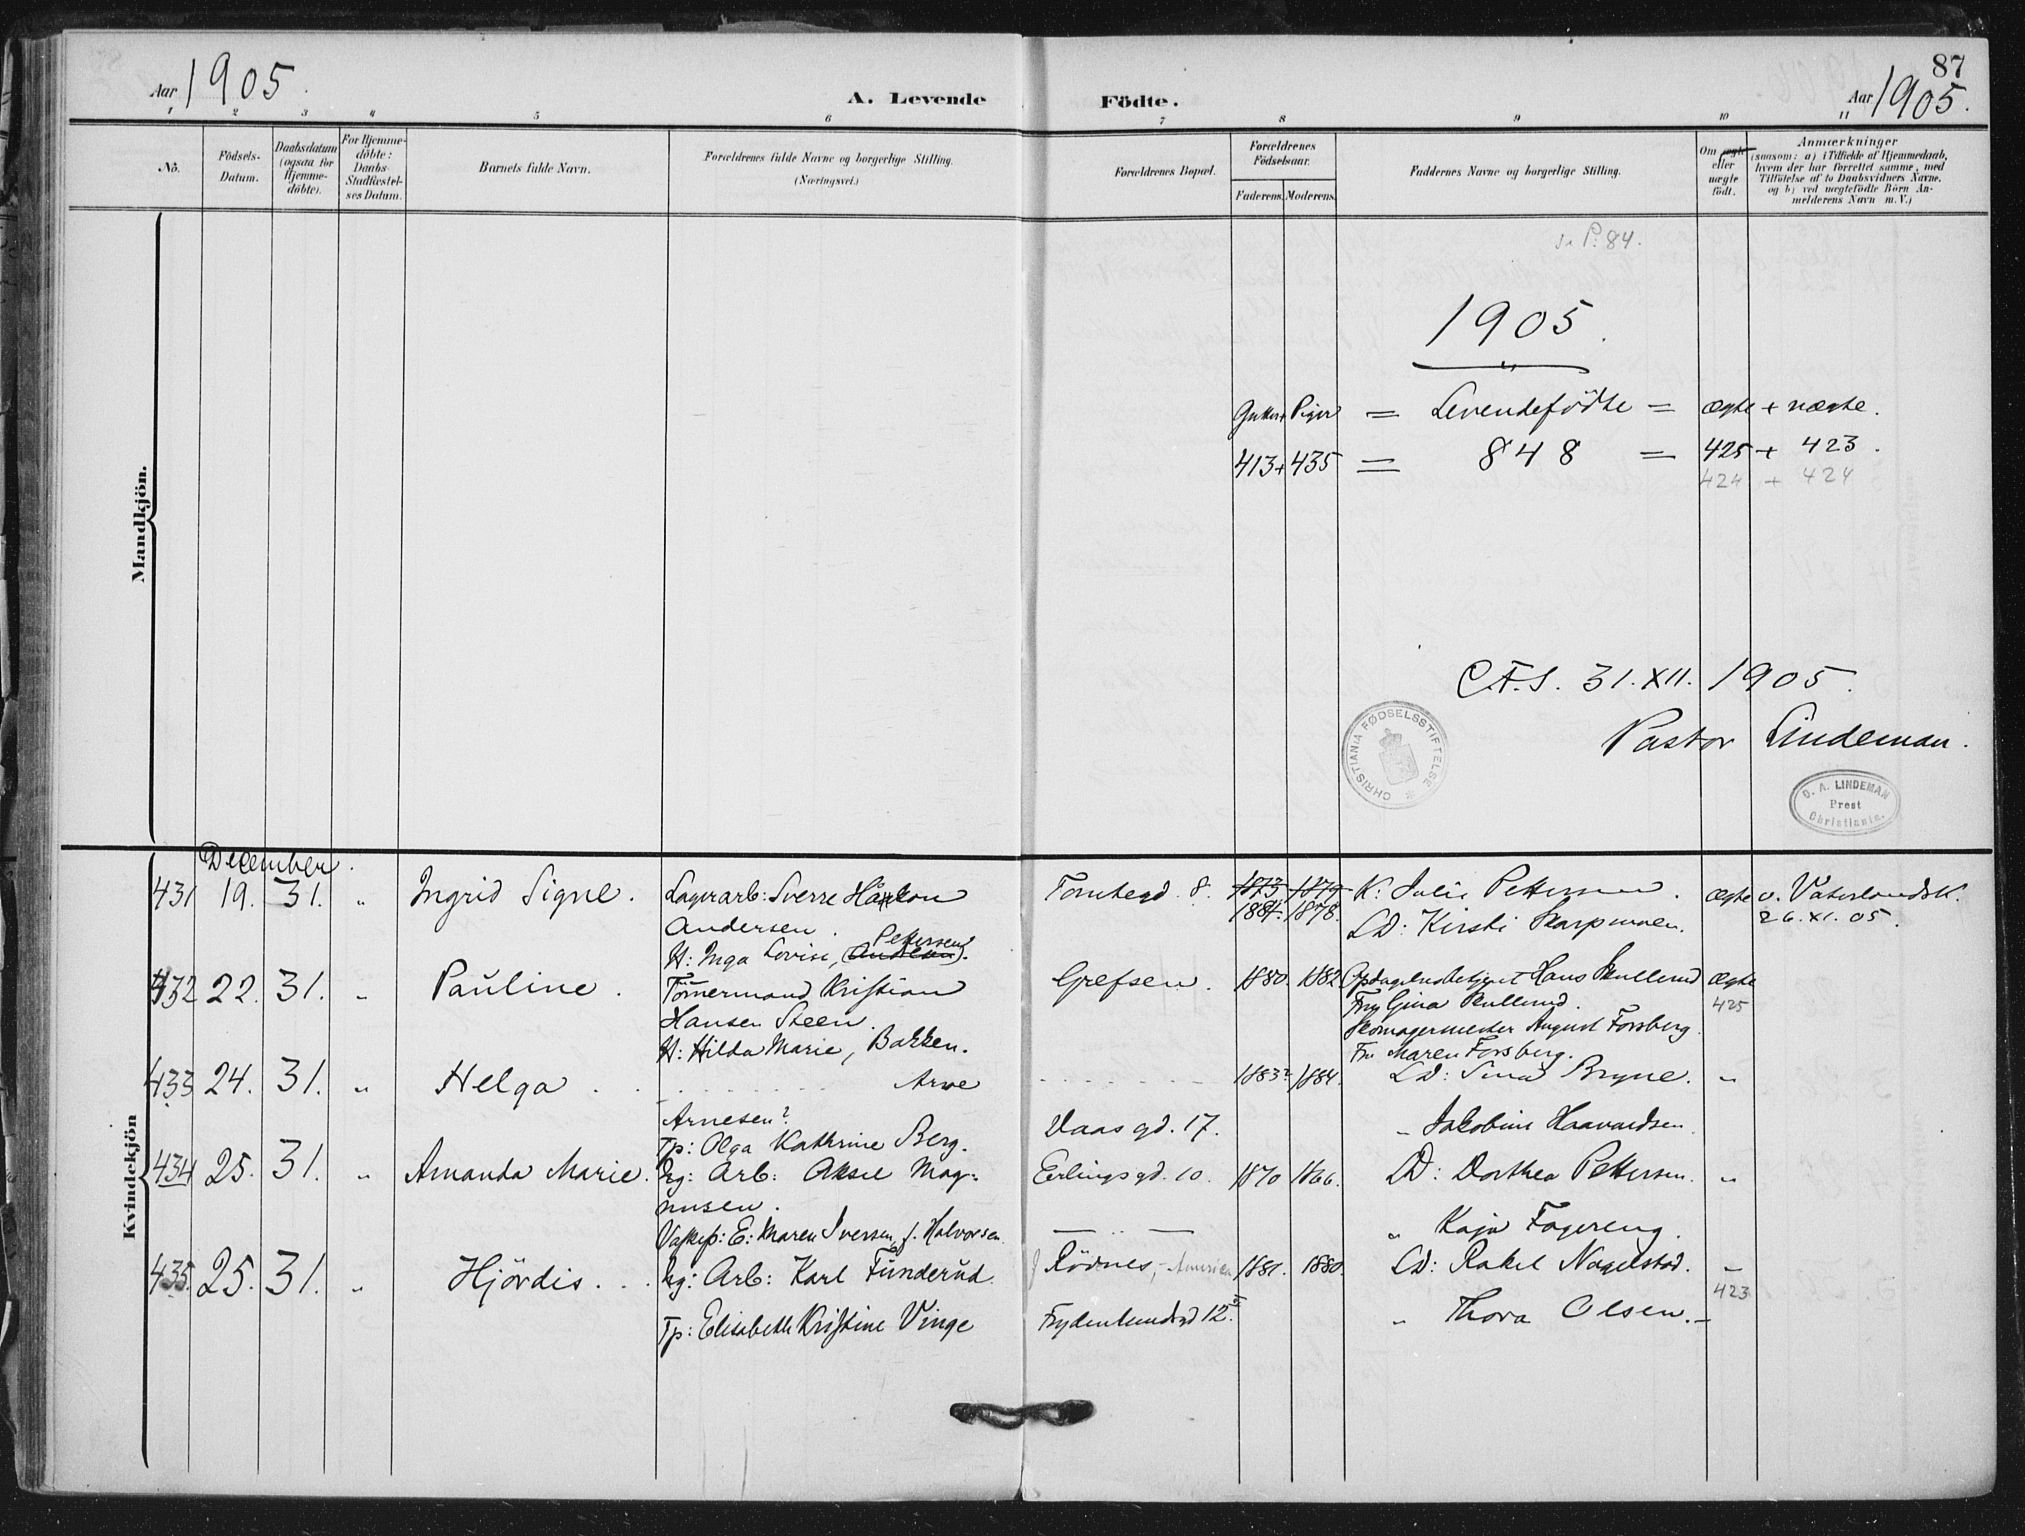 87
Aar 1905.
A. Levende Födte.
Aar 1905.
1 2 3 4 5 6 7 8 9 10 11
No.
Födsels-Datum.
Daabsdatum (ogsaa for Hjemme-döbte).
For Hjemme-döbte: Daabs-Stadfæstel-ses Datum.
Barnets fulde Navn.
Forældrenes fulde Navne og borgerlige Stilling. (Næringsvei.)
Forældrenes Bopæl.
Forældrenes Födselsaar.
Faderens. Moderens.
Faddernes Navne og borgerlige Stilling.
Om ægte eller uægte födt.
Anmærkninger
(saasom: a) i Tilfælde af Hjemmedaab,
hvem der har forrettet samme, med
Tilföielse af to Daabsvidners Navne.
og b) ved uægtefödte Börn An-
melderens Navn m. V.)
Mandkjön.
P. 84.
1905.
Gutter + Piger = Levendefödte = ægte + uægte.
413 + 435 = 848 = 425 + 423.
424 + 424
C.F.S. 31. XII. 1905.
Pastor Lindeman.
CHRISTIANIA FØDSELSSTIFTELSE
O. A. LINDEMAN
Prest
Christiania.
Kvindekjön
December.
431 19. 31. " Ingrid Signe. Lagerarb: Sverre Håkon Tomtegd. 8. 1873 1879 K: Julie Pettersen. ægte v. Vaterlandsk.
Andersen. 1884. 1878. LD: Kirsti Skarpmoen. 26. XI. 05.
Pettersen
H: Inga Lovise, (Andersen).
432 22. 31. " Pauline. Tömermand Kristian Grefsen. 1880. 1882 Opdagelsesbetjent Hans Skullerud ægte
Hansen Steen. Fru Gina Skullerud. 425
Skomagermester August Forsberg.
H: Hilda Marie, Bakken. Fru Maren Forsberg.
433 24. 31. " Helga . . Arne 1883? 1884. LD: Bryne. "
Arnesen? Vaasgd. 17. " Jakobine Haavardsen.
Tp: Olga Kathrine Berg.
434 25. 31. " Amanda Marie. Ug: Arb: Aksel Mag- Erlingsgd. 10. 1870 1866. LD: Dorthea Pettersen. "
nusen.
E: Maren Iversen, f. Halvorsen. " Kaja Fagereng.
435. 25. 31. " Hjördis. Ug: Arb: Karl Funderud. Rödnes, Amerika 1881. 1880. LD: Rakel Nagelstad. "
423
Tp: Elisabeth Kristine Vinge Frydenlundsgd 12. " Thora Olsen.